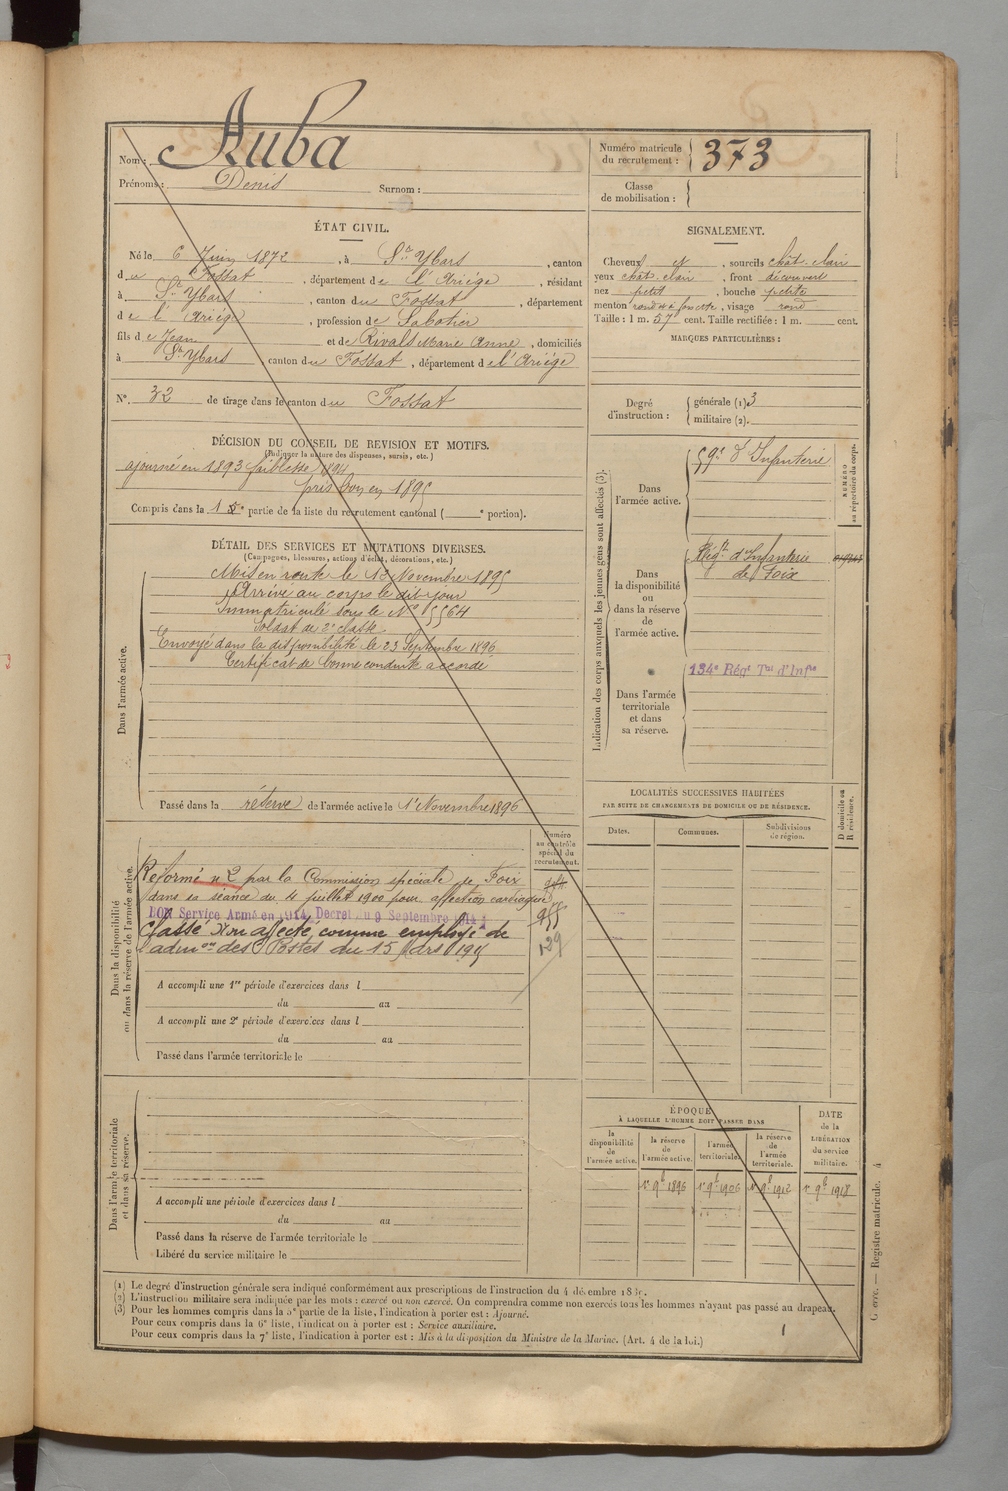 Nom : Auba
Prénoms : Denis Surnom :
Numéro matricule du recrutement : 373
Classe de mobilisation :
ÉTAT CIVIL.
Né le 6 Juin 1872, à St Ybars, canton
du Fossat, département de l'Ariége, résidant
à St Ybars, canton du Fossat, département
de l'Ariége, profession de Sabotier
fils de Jean et de Rivals Marie Anne, domiciliés
à St Ybars canton du Fossat, département de l'Ariége
N° 32 de tirage dans le canton du Fossat
SIGNALEMENT.
Cheveux N, sourcils chât. clair
yeux chât. clair, front découvert
nez petit, bouche petite
menton rond à fossette, visage rond
Taille : 1 m. 57 cent. Taille rectifiée : 1 m. cent.
MARQUES PARTICULIÈRES :
Degré d'instruction : générale (1) 3
militaire (2).
DÉCISION DU CONSEIL DE REVISION ET MOTIFS.
(Indiquer la nature des dispenses, sursis, etc.)
ajourné en 1893 faiblesse, 1894
pris bon en 1895
Compris dans la 1e partie de la liste du recrutement cantonal ( e portion).
DÉTAIL DES SERVICES ET MUTATIONS DIVERSES.
(Campagnes, blessures, actions d'éclat, décorations, etc.)
Dans l'armée active.
Mis en route le 13 Novembre 1895
Arrivé au corps le dit jour
Immatriculé sous le N° 5564
Soldat de 2e classe.
Envoyé dans la disponibilité le 23 Septembre 1896
Certificat de bonne conduite accordé
Passé dans la réserve de l'armée active le 1r Novembre 1896
Indication des corps auxquels les jeunes gens sont affectés (3).
NUMÉRO au répertoire du corps.
Dans l'armée active.
59e d'Infanterie
Dans la disponibilité ou dans la réserve de l'armée active.
Régt d'Infanterie
de Foix
Dans l'armée territoriale et dans sa réserve.
134e Régt Tal d'Infie
LOCALITÉS SUCCESSIVES HABITÉES
PAR SUITE DE CHANGEMENTS DE DOMICILE OU DE RÉSIDENCE.
Dates. Communes. Subdivisions de région.
D domicile ou R résidence.
Numéro au contrôle spécial du recrutement.
Dans la disponibilité ou dans la réserve de l'armée active.
Réformé n° 2 par la Commission spéciale de Foix
dans sa séance du 4 juillet 1900 pour affection cardiaque
BON Service Armé en 1914, Décret du 9 Septembre 1914
Classé Non affecté comme employé de
l'admon des Postes du 15 Mars 1915
955
129
A accompli une 1re période d'exercices dans l
du au
A accompli une 2e période d'exercices dans l
du au
Passé dans l'armée territoriale le
Dans l'armée territoriale et dans sa réserve.
A accompli une période d'exercices dans l
du au
Passé dans la réserve de l'armée territoriale le
Libéré du service militaire le
ÉPOQUE
À LAQUELLE L'HOMME DOIT PASSER DANS
la disponibilité de l'armée active.
la réserve de l'armée active.
l'armée territoriale.
la réserve de l'armée territoriale.
DATE de la LIBÉRATION du service militaire.
1r 9bre 1896 1r 9bre 1906 1r 9bre 1912 1r 9bre 1918
(1) Le degré d'instruction générale sera indiqué conformément aux prescriptions de l'instruction du 4 décembre 1889.
(2) L'instruction militaire sera indiquée par les mots : exercé ou non exercé. On comprendra comme non exercés tous les hommes n'ayant pas passé au drapeau.
(3) Pour les hommes compris dans la 5e partie de la liste, l'indication à porter est : Ajourné.
Pour ceux compris dans la 6e liste, l'indication à porter est : Service auxiliaire.
Pour ceux compris dans la 7e liste, l'indication à porter est : Mis à la disposition du Ministre de la Marine. (Art. 4 de la loi.)
Guerre. — Registre matricule. 4